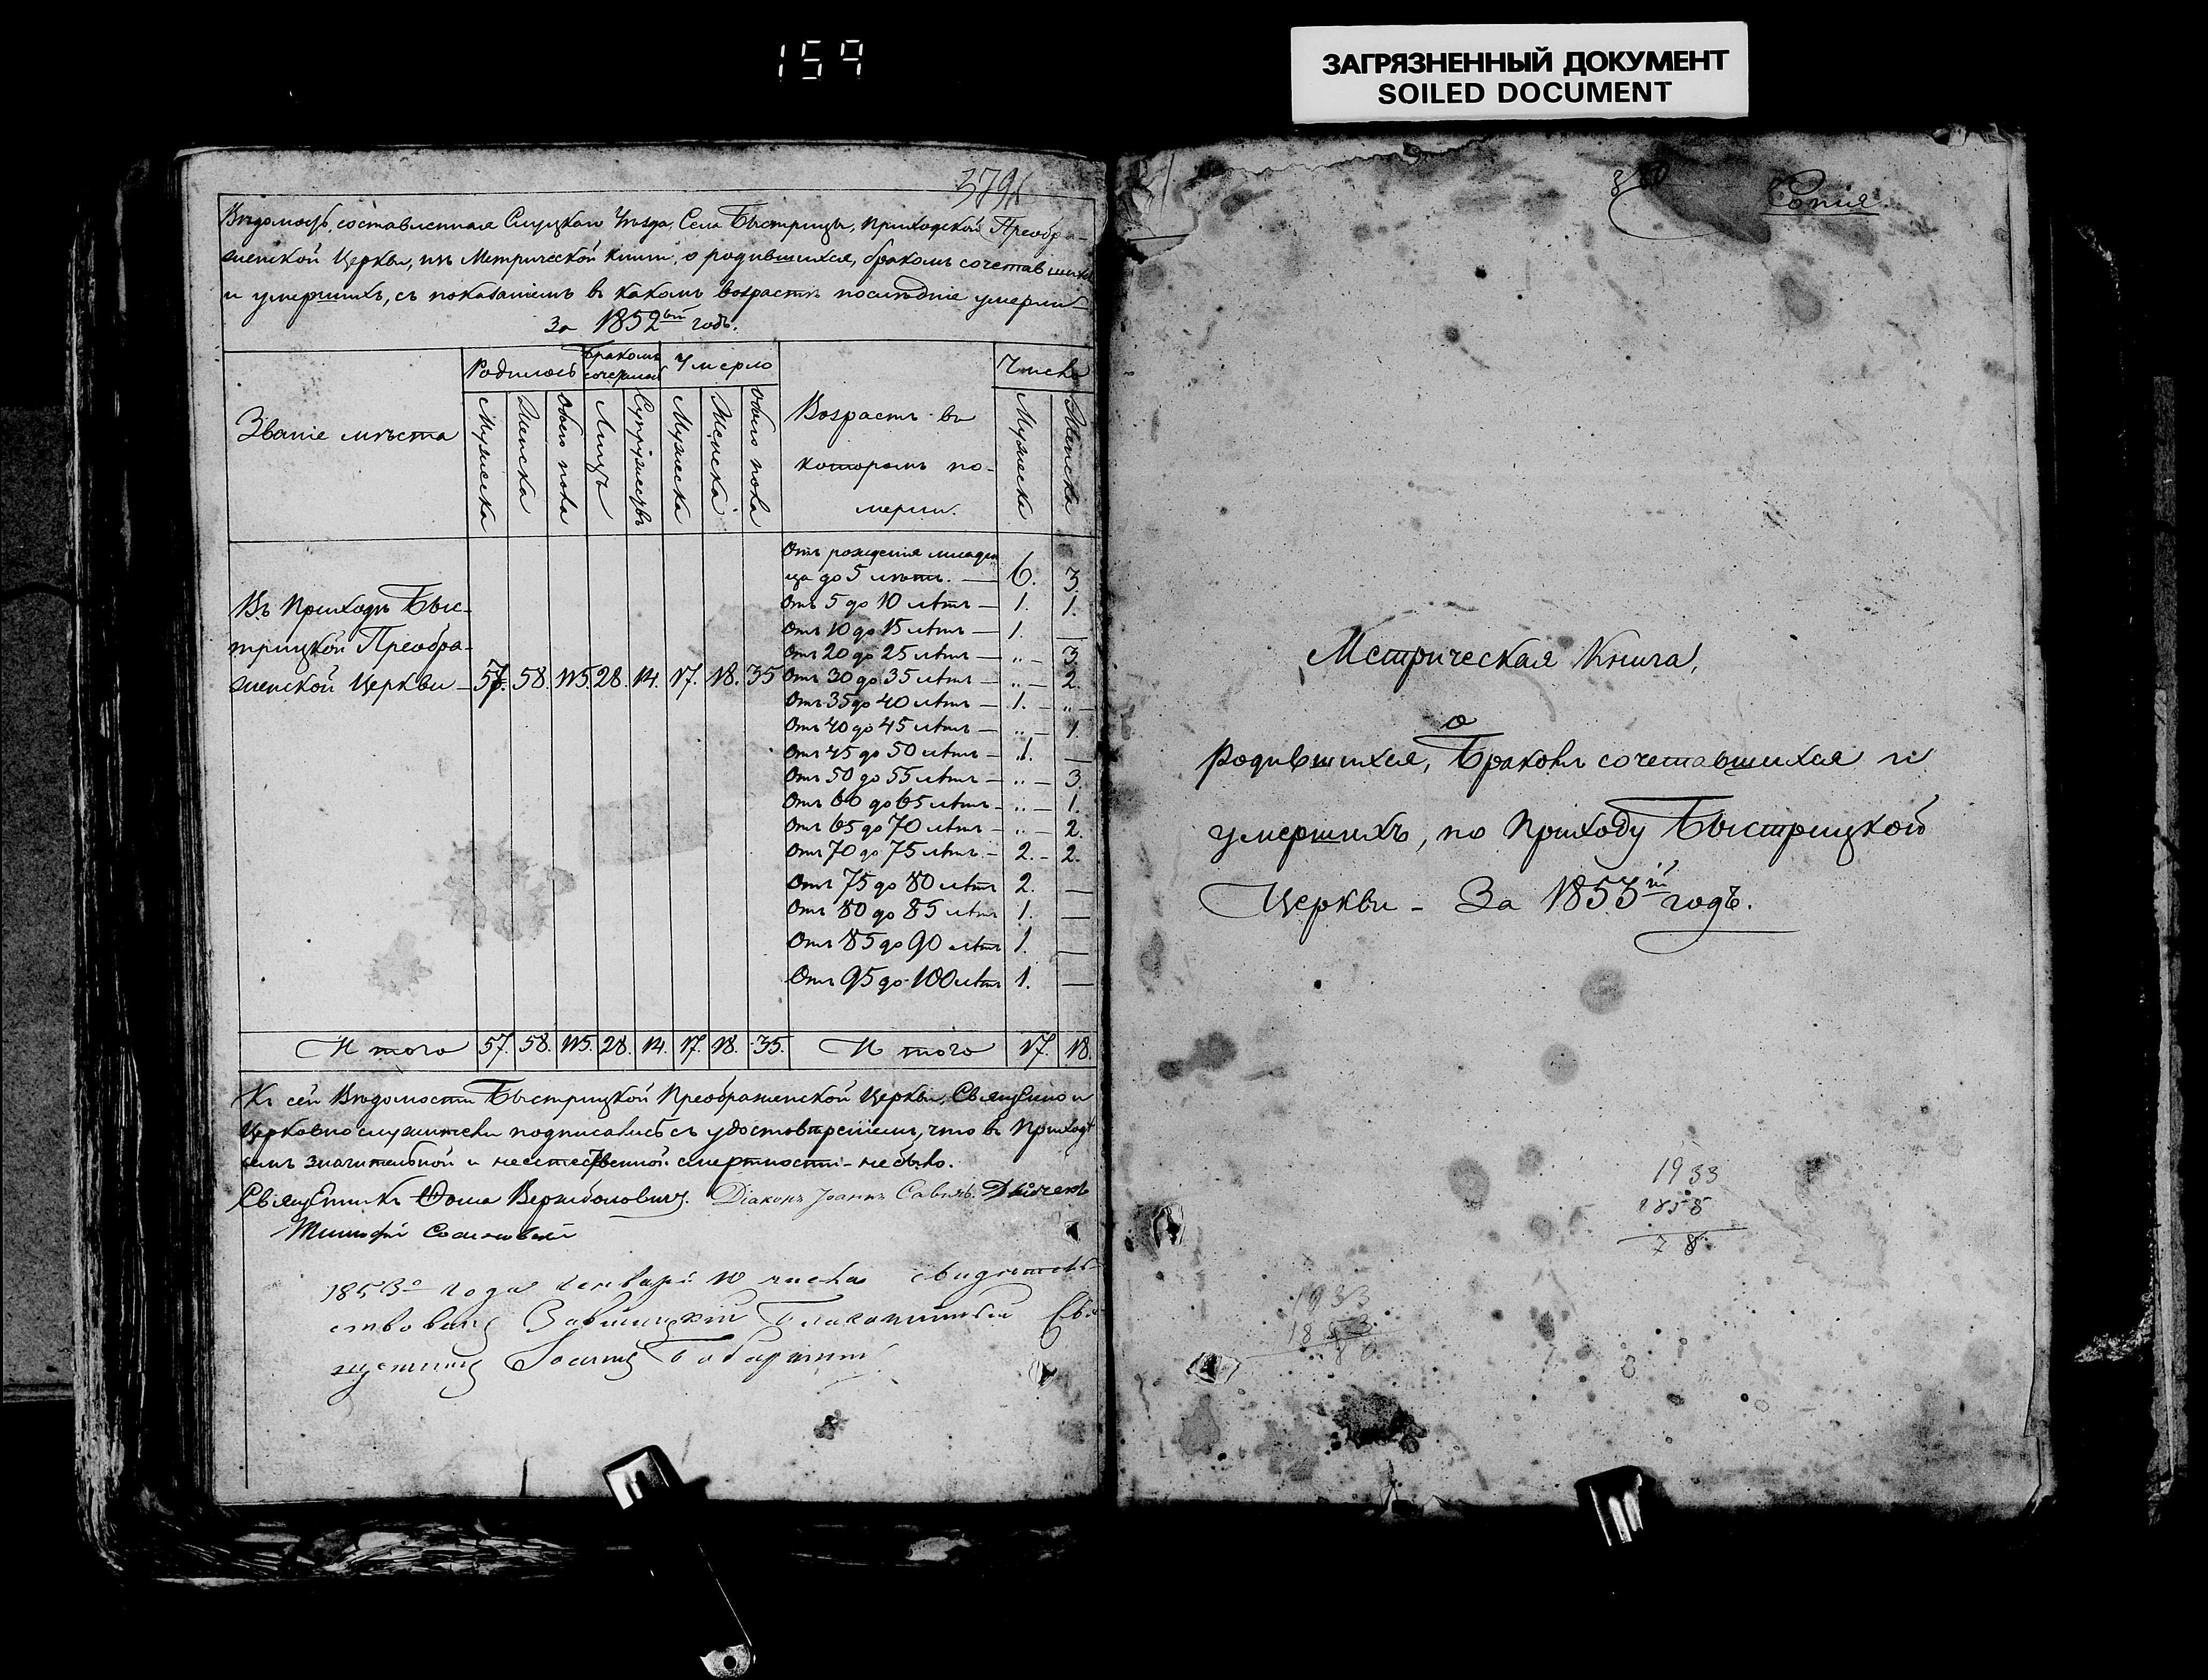 159
ЗАГРЯЗНЕННЫЙ ДОКУМЕНТ
SOILED DOCUMENT
379
Вѣдомость, составленная Слуцкаго Уѣзда, Села Быстрицы, Приходской Преобра-
женской Церкви, изъ Метрической книги, о родившихся, бракомъ сочетавшихся
и умершихъ, съ показаніемъ въ какомъ возрастѣ послѣдніе умерли
За 1852ой годъ.
Званіе мѣста
Родилось
Бракомъ сочеталось
Умерло
Возрастъ въ которомъ по-
мерли.
Число
Мужеска
Женска
Обоего пола
Лицъ
Супружествъ
Мужеска
Женска
Обоего пола
Мужеска
Женска
Въ Приходѣ Быс-
трицкой Преобра-
женской Церкви - 57. 58. 115. 28. 14. 17. 18. 35
Отъ рожденія младен
ца до 5 лѣтъ. — 6. 3.
Отъ 5 до 10 лѣтъ — 1. 1.
Отъ 10 до 15 лѣтъ — 1. —
Отъ 20 до 25 лѣтъ — .. — 3.
Отъ 30 до 35 лѣтъ — .. — 2.
Отъ 35 до 40 лѣтъ — 1. — ..
Отъ 40 до 45 лѣтъ — .. — 1.
Отъ 45 до 50 лѣтъ — 1. —
Отъ 50 до 55 лѣтъ — .. — 3.
Отъ 60 до 65 лѣтъ — .. — 1.
Отъ 65 до 70 лѣтъ — .. — 2.
Отъ 70 до 75 лѣтъ — 2. — 2.
Отъ 75 до 80 лѣтъ 2. —
Отъ 80 до 85 лѣтъ 1. —
Отъ 85 до 90 лѣтъ 1. —
Отъ 95 до 100 лѣтъ 1. —
И того 57. 58. 115. 28. 14. 17. 18. 35. И того 17. 18.
Къ сей Вѣдомости Быстрицкой Преображенской Церкви, Священно и
Церковнослужители подписались съ удостовѣреніемъ, что въ Приходѣ
семъ значительной и неестественной смертности - не было.
Священникъ Ѳома Вержболовичъ. Діаконъ Іоаннъ Савичъ. Дьячекъ
Тимофей
1853го года Января 10 числа свидѣтель-
ствовалъ Благочинный Свя
щенникъ Іоаннъ
Копія
Метрическая Книга,
о
родившихся, Бракомъ сочетавшихся и
умершихъ, по Приходу Быстрицкой
Церкви - За 1853й годъ.
1933
1855
78
1933
1853
80